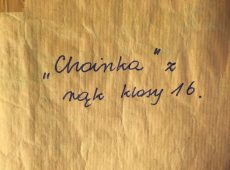 „Choinka" z
rąk klasy 16.